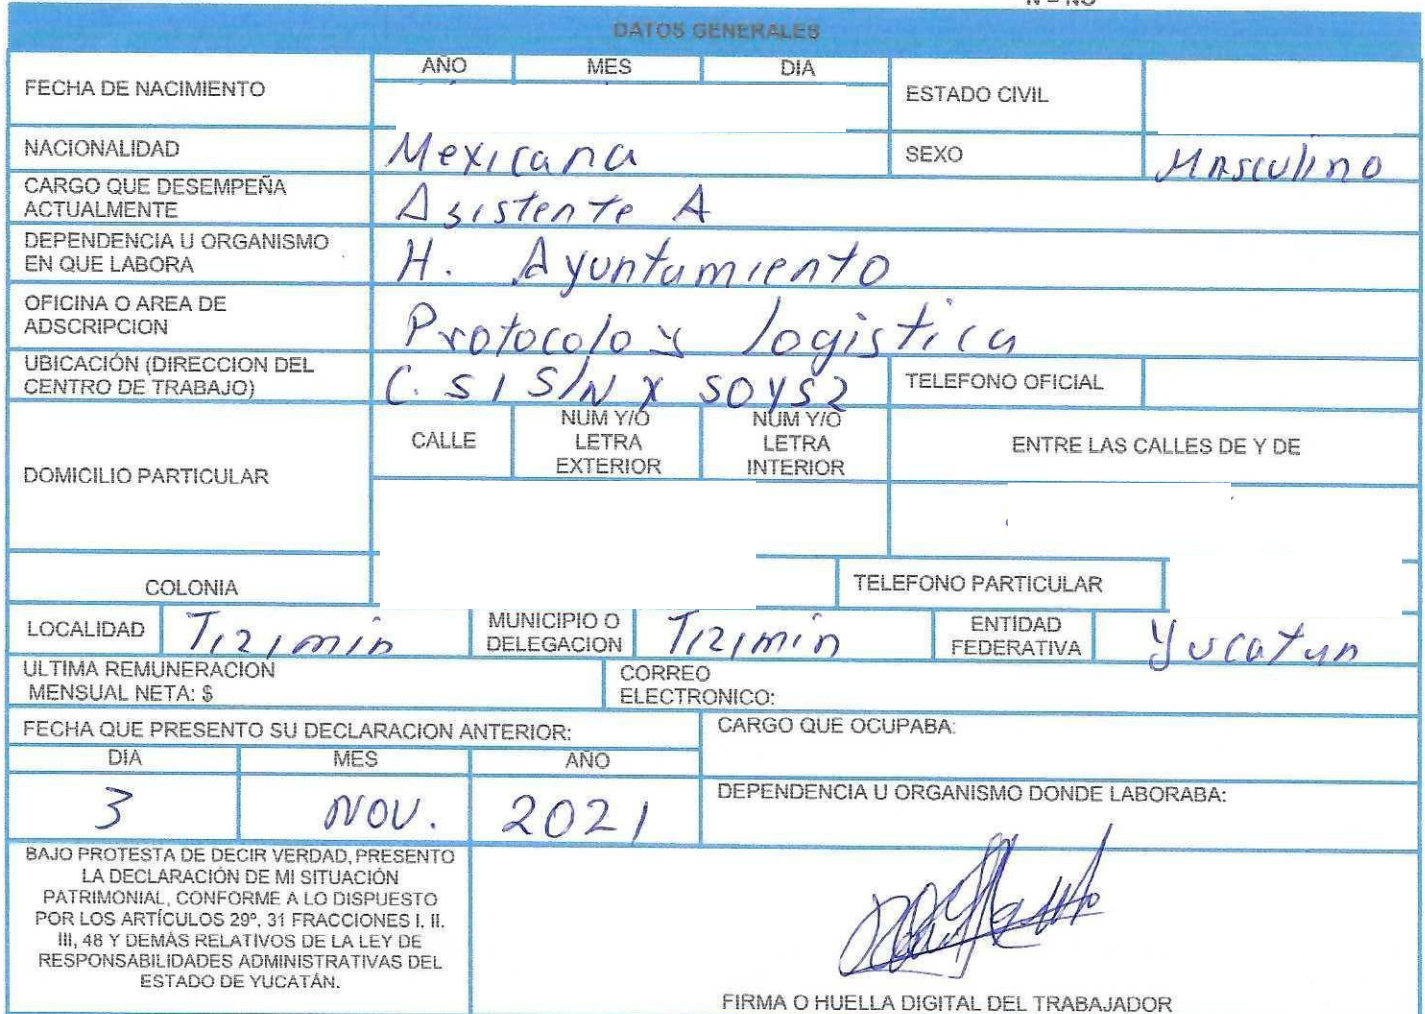 N = NO
DATOS GENERALES
FECHA DE NACIMIENTO
AÑO MES DIA
ESTADO CIVIL
NACIONALIDAD Mexicana SEXO Masculino
CARGO QUE DESEMPEÑA
ACTUALMENTE
Asistente A
DEPENDENCIA U ORGANISMO
EN QUE LABORA
H. Ayuntamiento
OFICINA O AREA DE
ADSCRIPCION
Protocolo y logistica
UBICACIÓN (DIRECCION DEL
CENTRO DE TRABAJO)
C. 51 S/N X 50 y 52
TELEFONO OFICIAL
DOMICILIO PARTICULAR
CALLE
NUM Y/O
LETRA
EXTERIOR
NUM Y/O
LETRA
INTERIOR
ENTRE LAS CALLES DE Y DE
COLONIA
TELEFONO PARTICULAR
LOCALIDAD Tizimin
MUNICIPIO O
DELEGACION
Tizimin
ENTIDAD
FEDERATIVA
Yucatan
ULTIMA REMUNERACION
MENSUAL NETA: $
CORREO
ELECTRONICO:
FECHA QUE PRESENTO SU DECLARACION ANTERIOR:
DIA MES AÑO
3 NOV. 2021
CARGO QUE OCUPABA:
DEPENDENCIA U ORGANISMO DONDE LABORABA:
BAJO PROTESTA DE DECIR VERDAD, PRESENTO
LA DECLARACIÓN DE MI SITUACIÓN
PATRIMONIAL, CONFORME A LO DISPUESTO
POR LOS ARTÍCULOS 29º, 31 FRACCIONES I, II,
III, 48 Y DEMÁS RELATIVOS DE LA LEY DE
RESPONSABILIDADES ADMINISTRATIVAS DEL
ESTADO DE YUCATÁN.
FIRMA O HUELLA DIGITAL DEL TRABAJADOR